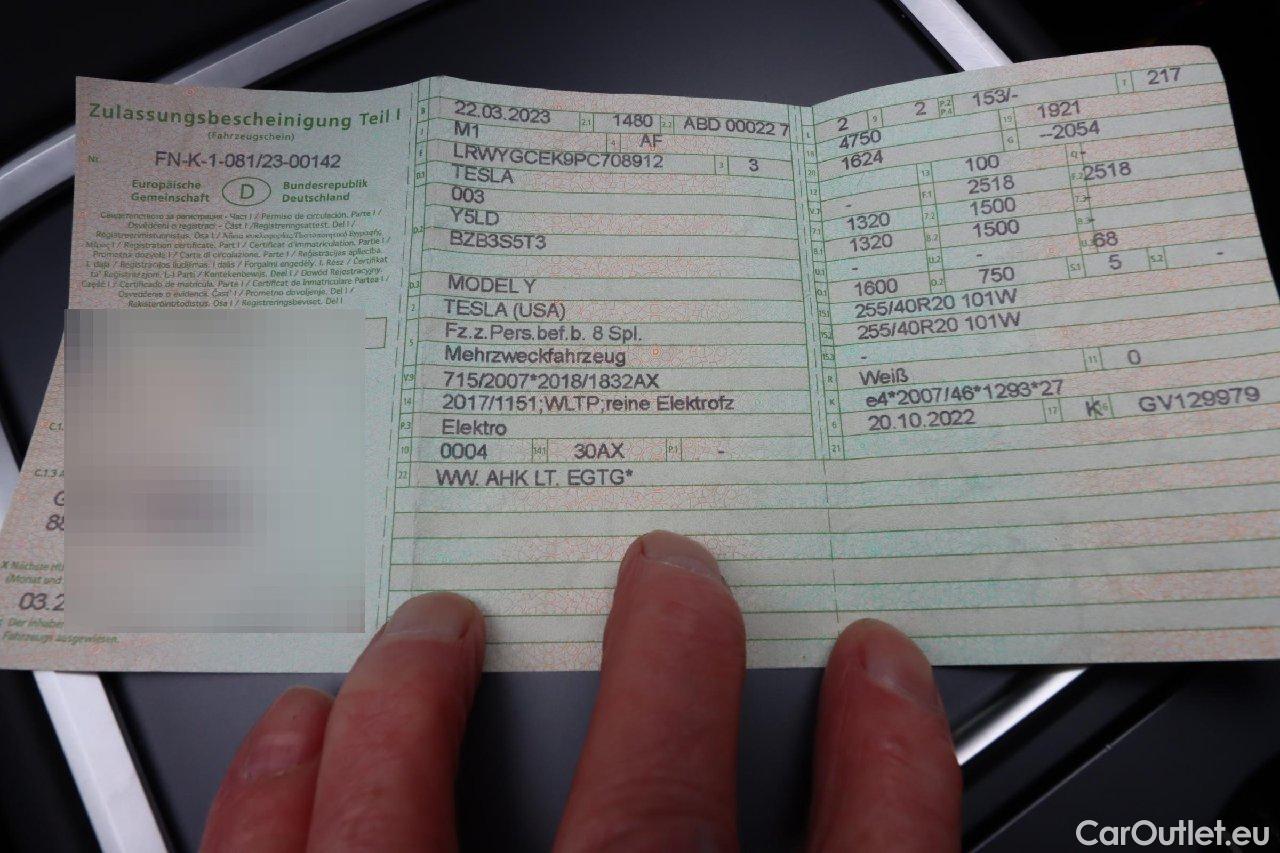 Zulassungsbescheinigung Teil I
(Fahrzeugschein)
Nr. FN-K-1-081/23-00142
Europäische Gemeinschaft D Bundesrepublik Deutschland
Свидетелство за регистрация - Част I / Permiso de circulación. Parte I /
Osvědčení o registraci - Část I / Registreringsattest. Del I /
Registreerimistunnistus. Osa I / Άδεια κυκλοφορίας
Μέρος I / Registration certificate. Part I / Certificat d'immatriculation. Partie I /
Prometna dozvola I / Carta di circolazione. Parte I / Reģistrācijas apliecība.
I. daļa / Registracijos liudijimas. I dalis / Forgalmi engedély. I. Rész / Ċertifikat
ta' Reġistrazzjoni. L-I Parti / Kentekenbewijs. Deel I / Dowód Rejestracyjny.
Część I / Certificado de matrícula. Parte I / Certificat de înmatriculare Partea I /
Osvedčenie o evidencii. Časť I / Prometno dovoljenje. Del I /
Rekisteröintitodistus. Osa I / Registreringsbeviset. Del I
C.1.
C.1.3
88
03.2
Fahrzeugs ausgewiesen.
B 22.03.2023 2.1 1480 2.2 ABD 00022 7
J M1 4 AF
E LRWYGCEK9PC708912 3 3
D.1 TESLA
003
D.2 Y5LD
BZB3S5T3
D.3 MODEL Y
2 TESLA (USA)
5 Fz.z.Pers.bef.b. 8 Spl.
Mehrzweckfahrzeug
V.9 715/2007*2018/1832AX
14 2017/1151;WLTP;reine Elektrofz
P.3 Elektro
10 0004 14.1 30AX P.1 -
22 WW. AHK LT. EGTG*
L 2 9 2 P.2 P.4 153/- T 217
18 4750 19 1921
20 1624 G --2054
12 - 13 100 Q -
V.7 - F.1 2518 F.2 2518
7.1 1320 7.2 1500 7.3 -
8.1 1320 8.2 1500 8.3 -
U.1 - U.2 - U.3 68
O.1 1600 O.2 750 S.1 5 S.2 -
15.1 255/40R20 101W
15.2 255/40R20 101W
15.3 -
R Weiß 11 0
K e4*2007/46*1293*27
6 20.10.2022 17 K 16 GV129979
21
CarOutlet.eu